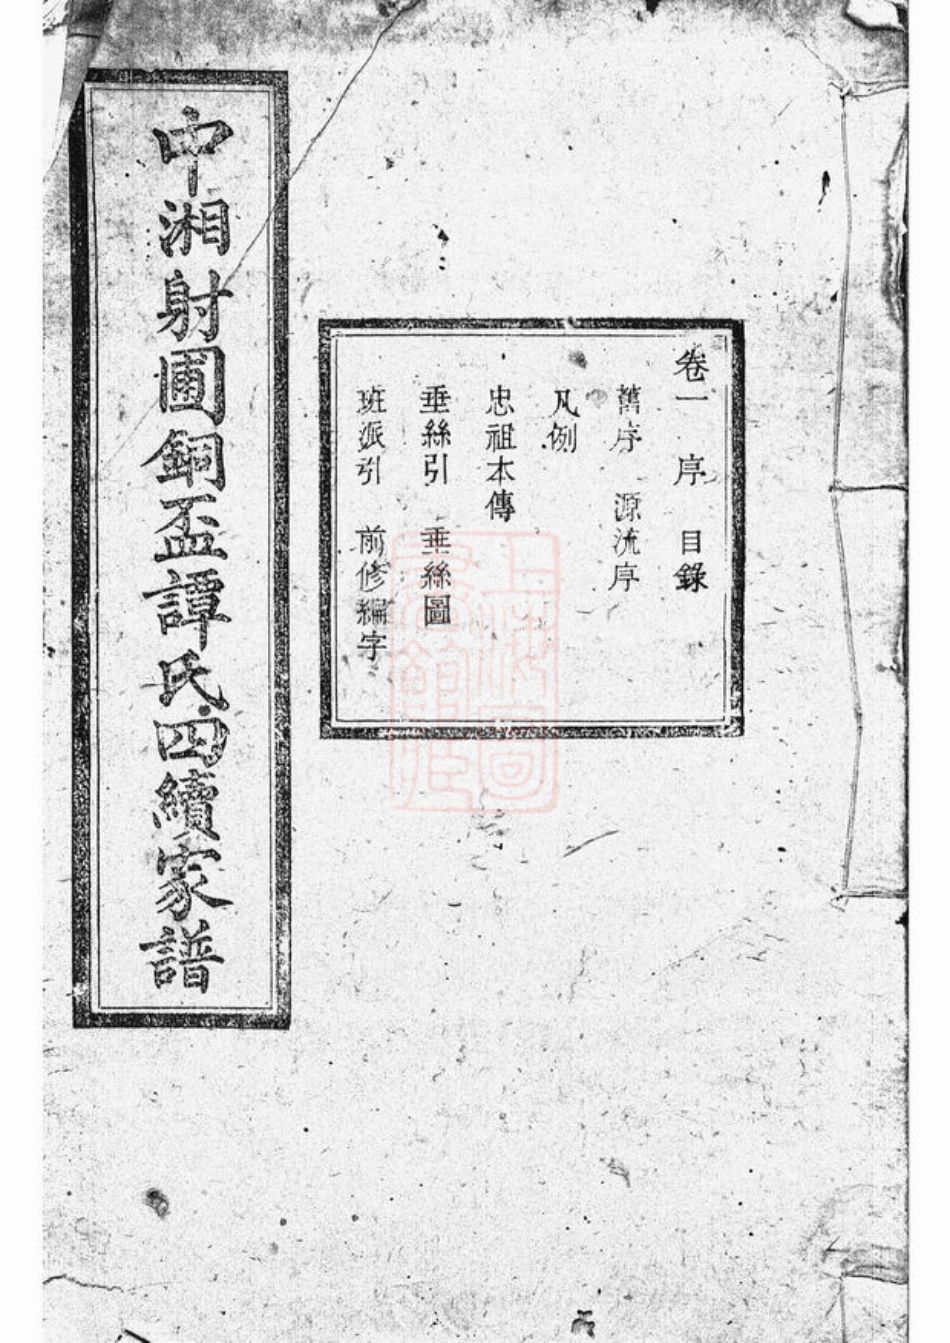 卷一 序 目錄
舊序 源流序
凡例
忠祖本傳
垂絲引 垂絲圖
班派引 前修編字
中湘射圃銅盃譚氏四續家譜